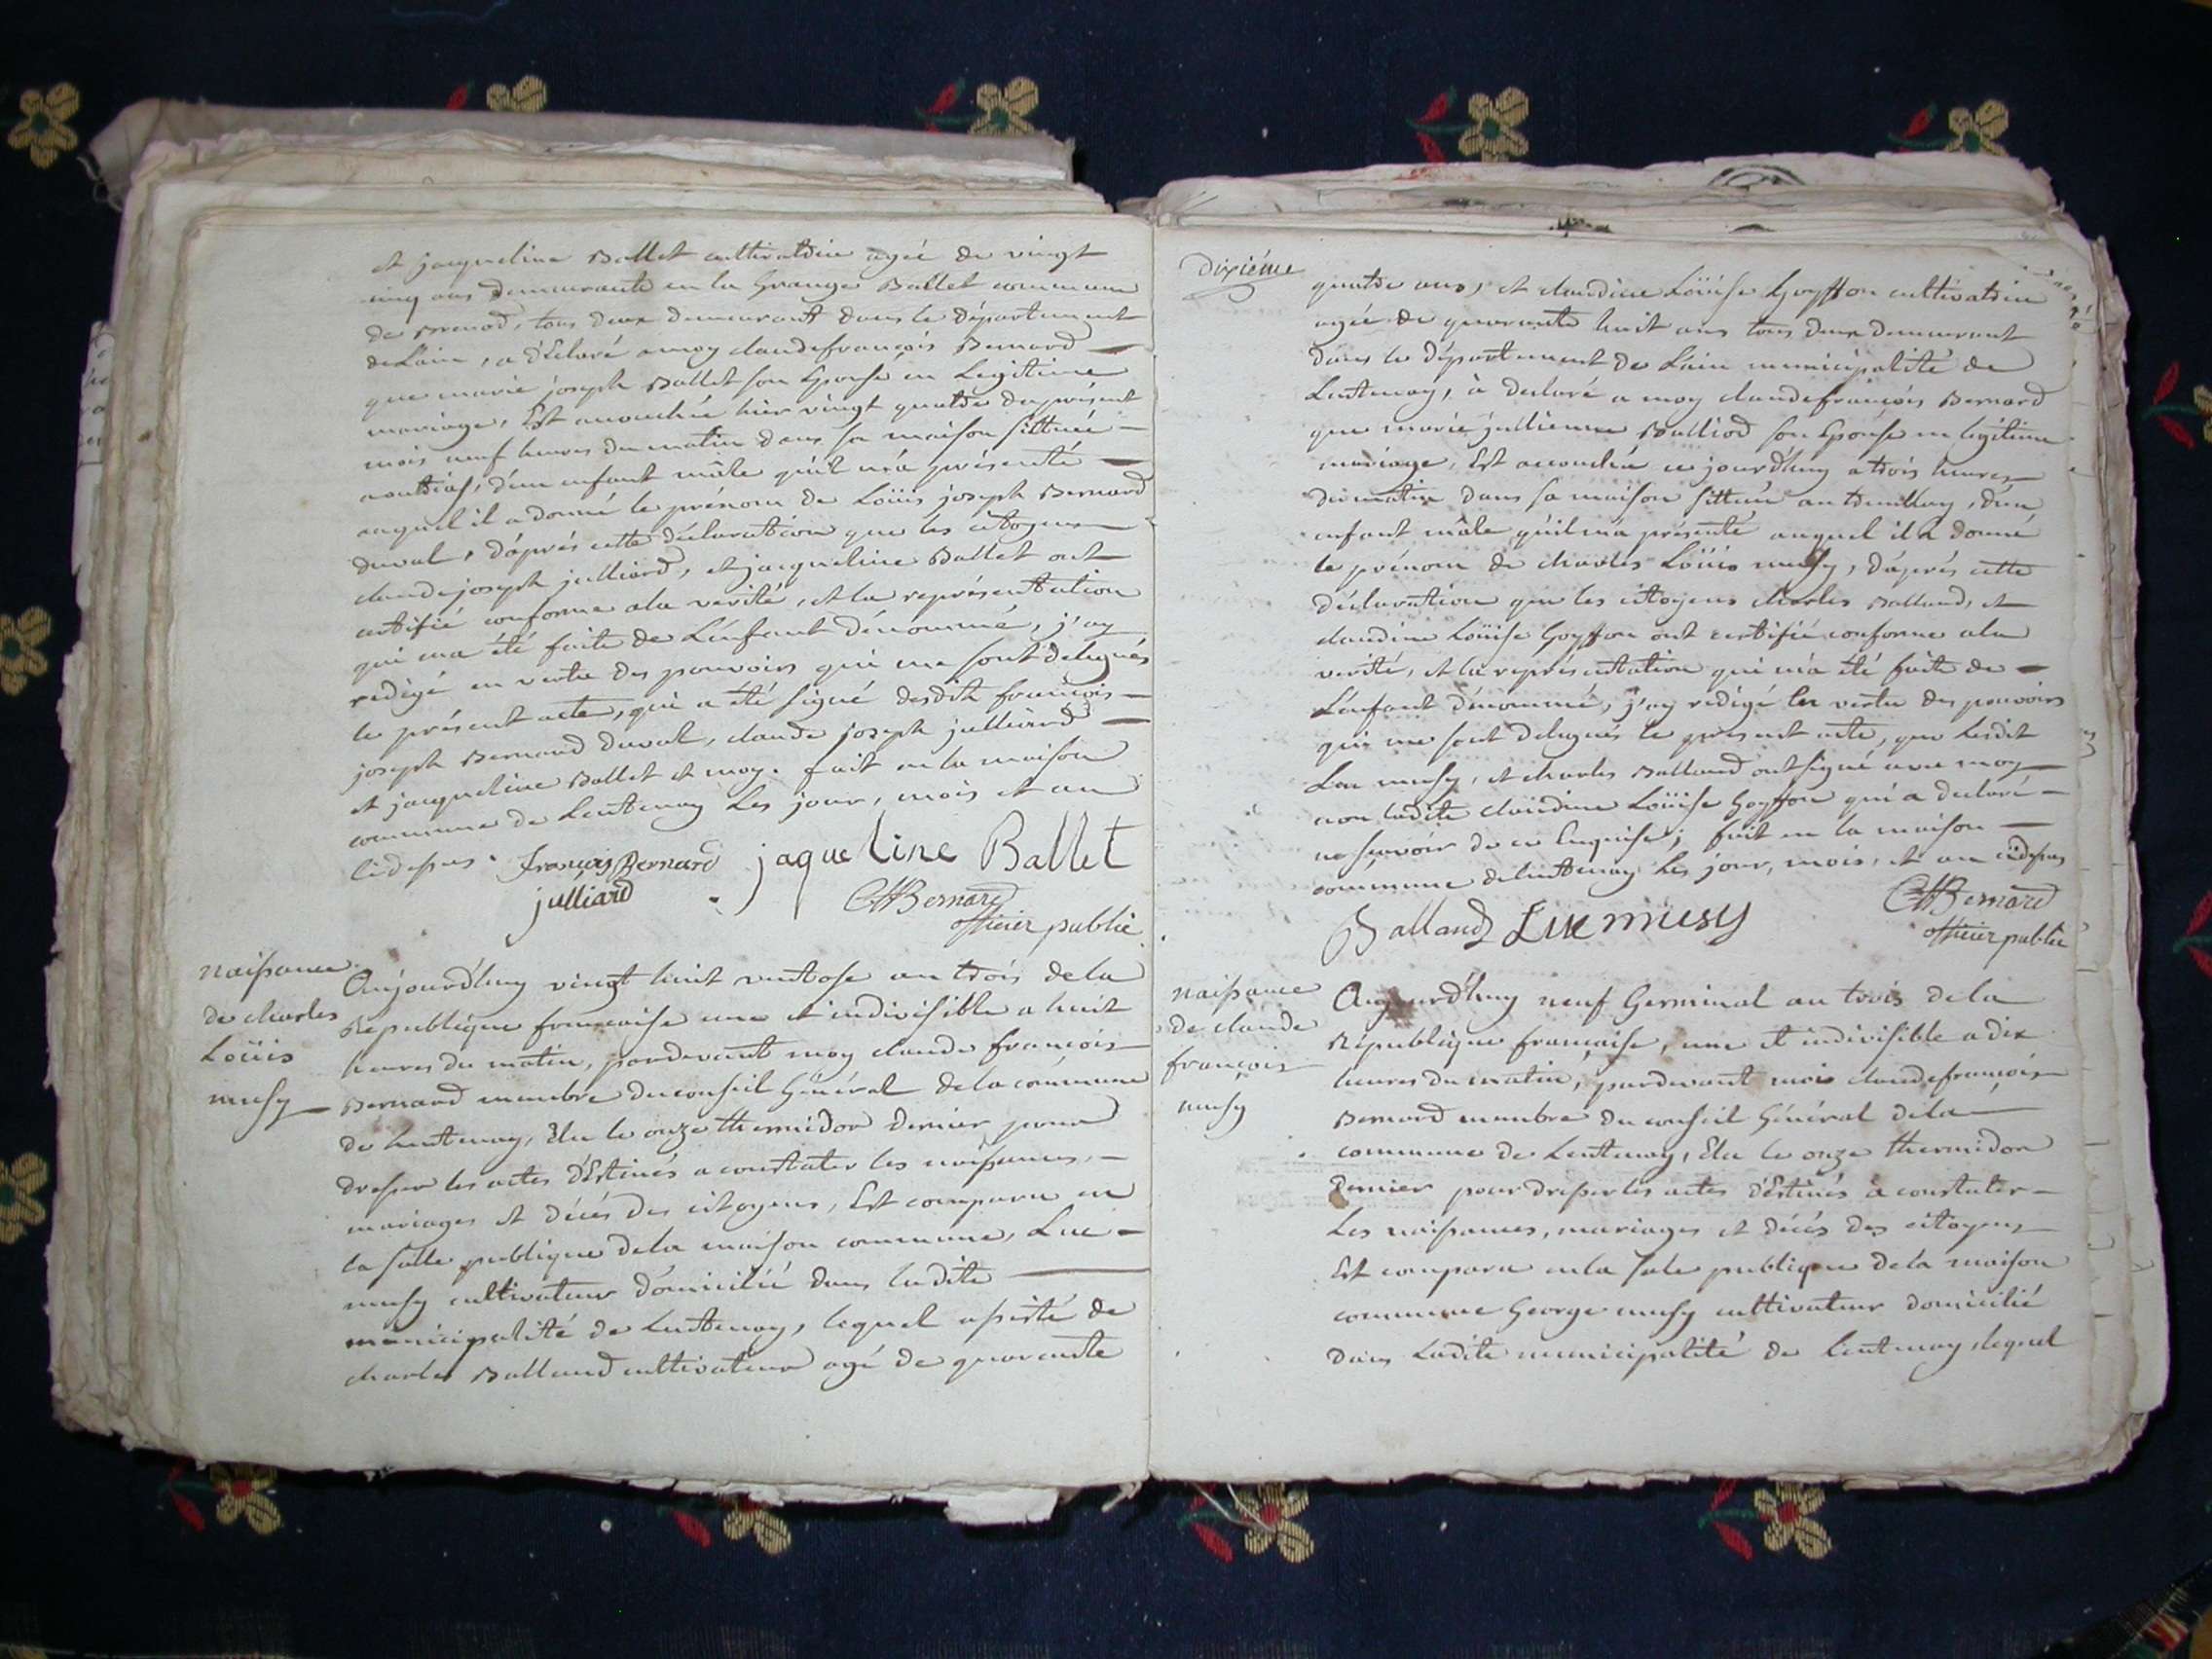 et jacqueline Ballet cultivatrice agée de vingt
cinq ans demeurante en la Grange Ballet commune
de Brenod, tous deux demeurant dans le département
de Lain, a déclaré a moy claude françois Bernard
que marie joseph Ballet son Epouse en Legitime
mariage, Est accouchée hier vingt quatre du présent
mois neuf heures du matin dans sa maison sittuée
d'un enfant mâle qu'il m'a présenté
auquel il a donné le prénom de Loüis joseph Bernard
duval, d'aprés cette déclaration que les citoyens
claude joseph julliard, et jacqueline Ballet ont
certifié conforme a la verité, et la représentation
qui ma été faite de L'enfant dénommé, j'ay
redigé en vertu des pouvoirs qui me sont delegués
le présent acte, qui a été signé desdits françois
joseph Bernard duval, claude joseph julliard
et jacqueline Ballet et moy. fait en la maison
commune de Lentenay Les jour, mois et an
cidessus. françois Bernard jaqueline Ballet
julliard CfBernard
officier public
naissance
de charles
Loüis
musy
Aujourd'huy vingt huit ventose an trois de la
République francaise une et indivisible a huit
heures du matin, pardevant moy claude françois
Bernard membre du conseil Général de la commune
de Lentenay, Elu le onze thermidor dernier pour
dresser les actes d'Estinés a constater les naissances,
mariages et décés des citoyens, Est comparu en
la salle publique de la maison commune, Luc
musy cultivateur domicilié dans ladite
municipalité de Lentenay, lequel assisté de
charles Balland cultivateur agé de quarente
dixiéme
quatre ans, et claudine Loüise Goyffon cultivatrice
agée de quarante huit ans tous deux demeurant
dans le département de Lain municipalité de
Lentenay, à declaré a moy claude françois Bernard
que marie jullienne Balliod son Epouse en legitime
mariage, Est accouchée ce jourd'huy a trois heures
du matin dans sa maison sittuée au , d'un
enfant mâle qu'il m'a présenté auquel il a donné
le prénom de charles Loüis musy, d'aprés cette
déclaration que les citoyens charles Balland, et
claudine Loüise Goyffon ont certifié conforme a la
verité, et la représentation qui m'a été faite de
L'enfant dénommé, j'ay redigé En vertu des pouvoirs
qui me sont delegués le présent acte, que Lesdit
Luc musy, et charles Balland ont signé avec moy
non ladite claudine Loüise Goyffon qui a declaré
ne sçavoir de ce Enquise; fait en la maison
commune de lentenay Les jour, mois, et an cidessus
Balland Luc musy CfBernard
officier public
naissance
de claude
françois
musy
Aujourd'huy neuf Germinal an trois de la
République française, une et indivisible a dix
heures du matin, pardevant moi claude françois
Bernard membre du conseil Général de la
commune de Lentenay, Elu le onze thermidor
Dernier pour dresser les actes d'Estinés à constater
Les naissances, mariages et décés des citoyens
Est comparu en la sale publique de la maison
commune George musy cultivateur domicilié
dans Ladite municipalité de lentenay lequel